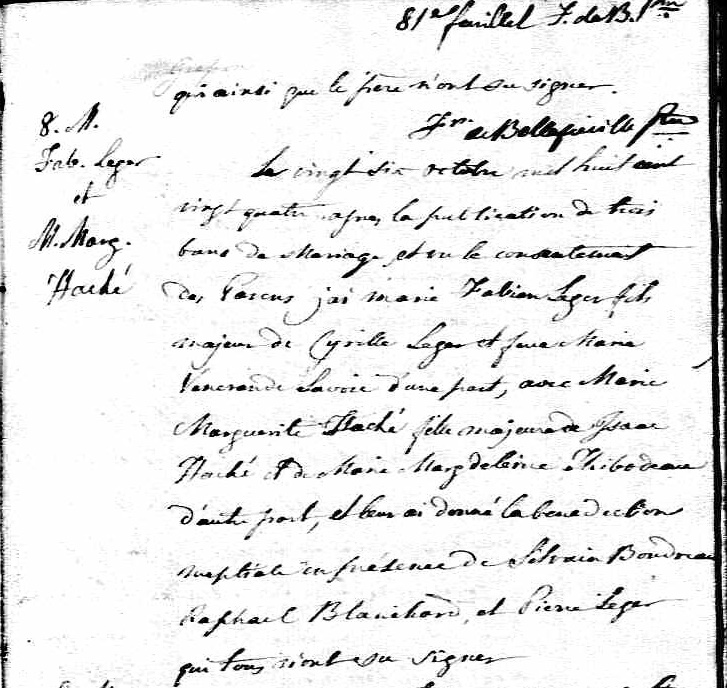 81e feuillet F. de B. Ptre
qui ainsi que le frère n'ont su signer.
8. M.
Fab. Leger
et
M. Marg.
Haché
Frs. de Bellefeuille Ptre
Le vingt six octobre mil huit cent
vingt quatre après la publication de trois
bans de Mariage et vu le consentement
des Parens j'ai marié Fabien Leger fils
majeur de Cyrille Leger et feue Marie
Vénérande Savoie d'une part, avec Marie
Marguerite Haché fille majeure de Isaac
Haché et de Marie Margdeleine Thibodeau
d'autre part, et leur ai donné la benediction
nuptiale en présence de Silvain Boudreau
Raphael Blanchard, et Pierre Leger
qui tous n'ont su signer